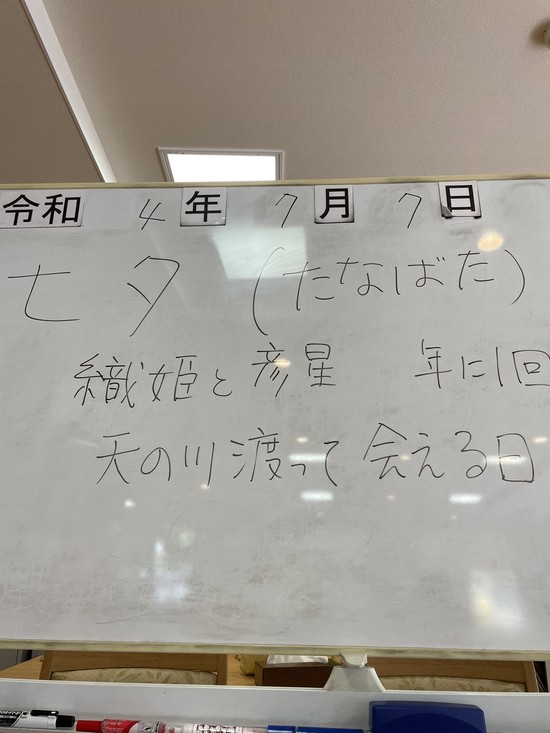 令和 4 年 7 月 7 日
七夕 (たなばた)
織姫と彦星 年に1回
天の川渡って会える日